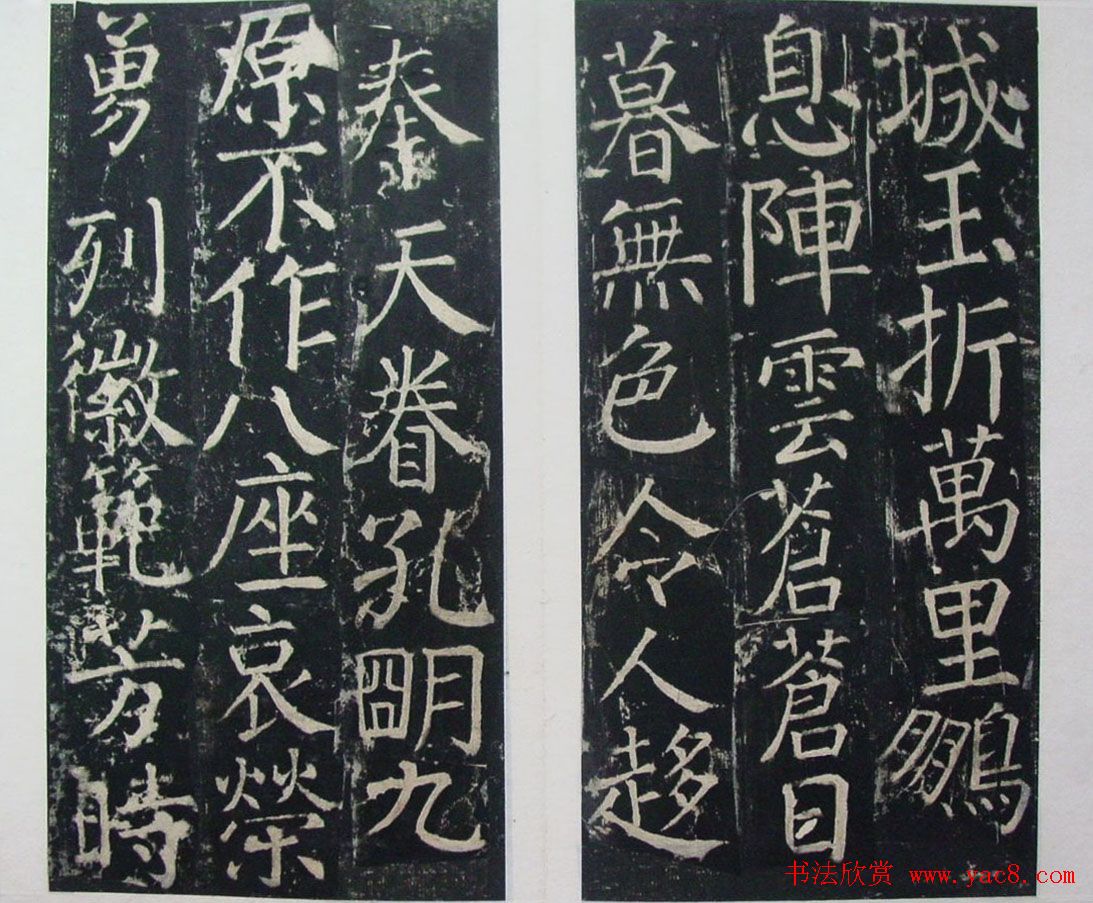 城玉折萬里鵬
息陣雲蒼蒼日
暮無色令人趍
奉天眷孔朙九
原不作八座哀榮
勇列徽範芳時
书法欣赏 www.yac8.com